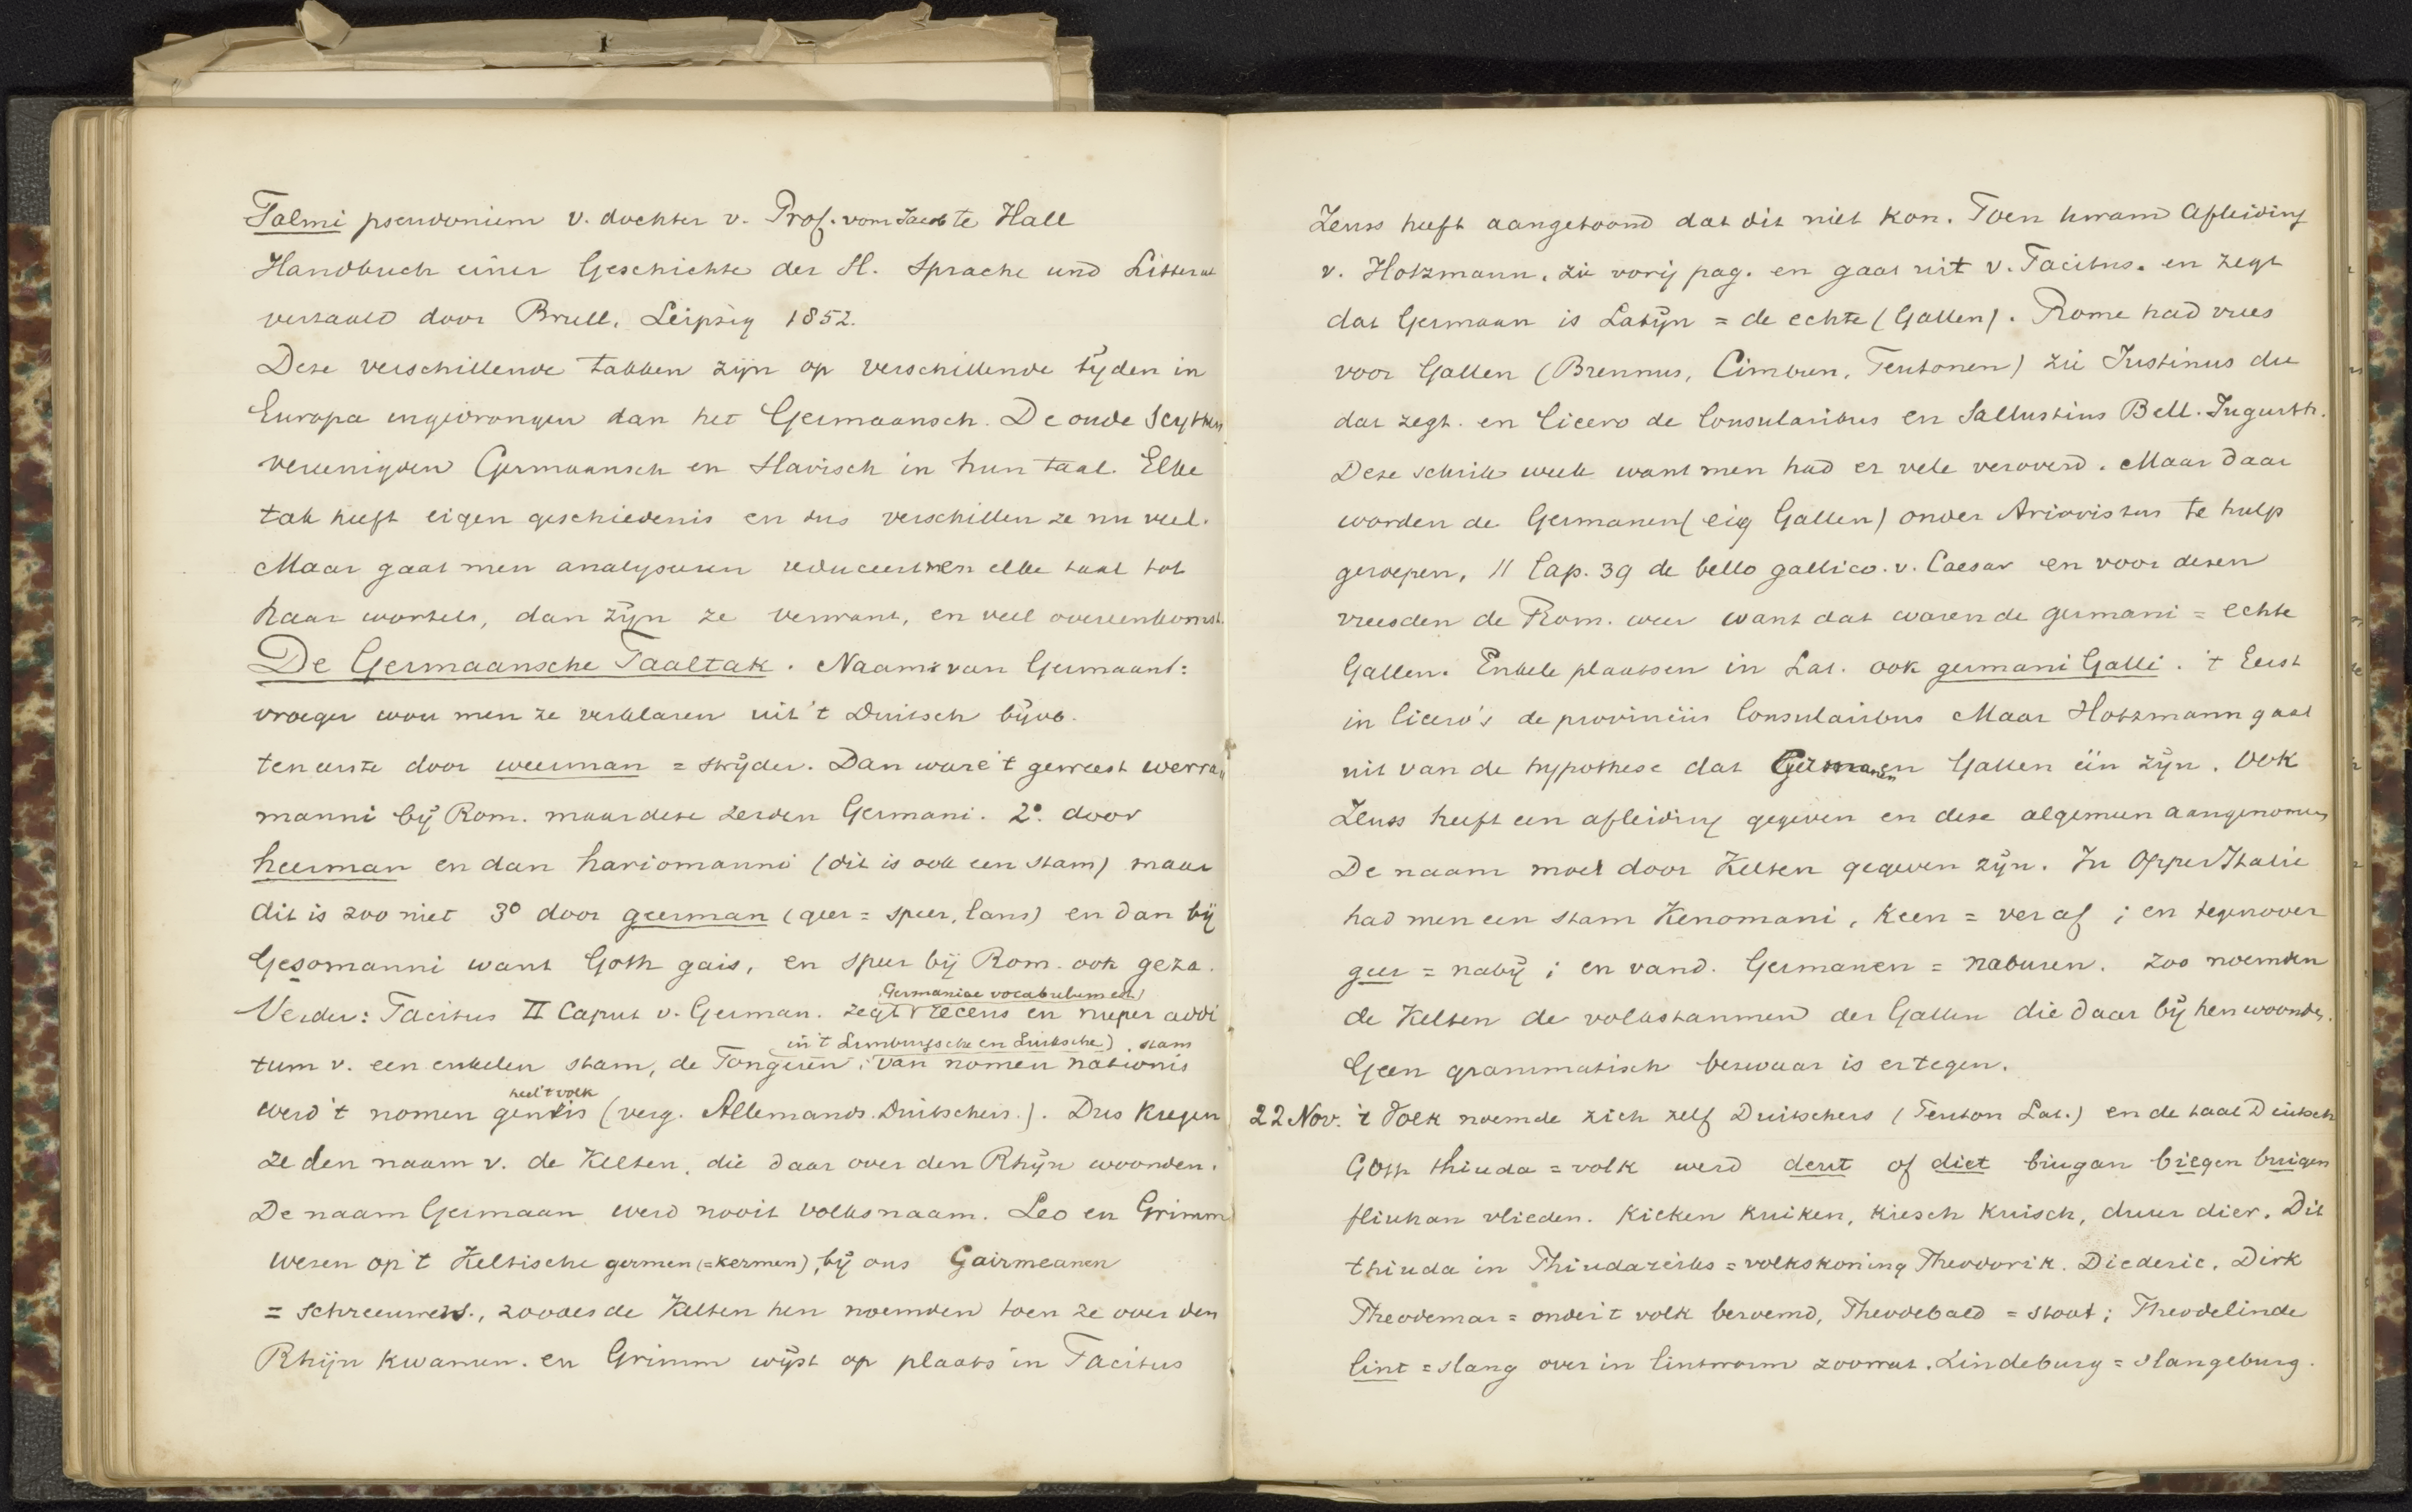 Talmi pseudoniem v. dochter v. Prof. vom Jacob te Hall
Handbuch einer Geschichte der Sl. Sprache und Litterat
vertaald door Bruhl, Leipzig 1852.
Deze verschillende takken zijn op verschillende tijden in
Europa ingedrongen dan het Germaansch. De oude Scythen
vereenigden Germaansch en Slavisch in hun taal. Elke
tak heeft eigen geschiedenis en dus verschillen ze nu veel.
Maar gaat men analyseeren reduceert men elke taal tot
haar wortels, dan zijn ze verwant, en veel overeenkomst.
De Germaansche Taaltak. Naam van Germaant:
vroeger wou men ze verklaren uit 't Duitsch bijvb.
ten eerste door weerman = strijder. Dan ware 't geweest werra
manni bij Rom. maar deze zeiden Germani. 2o. door
heerman en dan hariomanni (dit is ook een stam) maar
dit is zoo niet 3o door geerman (geer = speer, lans) en dan bij
Gesomanni want Goth gais, en speer bij Rom. ook geza.
Germaniae vocabulum est)
Verder: Tacitus II Caput v. German. zegt recens en nuper addi
in 't Limburgsche en Luiksche) stam
tum v. een enkelen stam, de Tongeren; van nomen nationis
heel 't volk
werd 't nomen gentis (verg. Allemands Duitschers.). Dus kregen
ze den naam v. de Kelten, die daar over den Rhijn woonden.
De naam Germaan werd nooit volksnaam. Leo en Grimm
wezen op 't Keltische germen (=kermen), bij ons Gairmeanen
= schreeuwers., zooals de Kelten hen noemden toen ze over den
Rhijn kwamen. en Grimm wijst op plaats in Tacitus
Zeuss heeft aangetoond dat dit niet kon. Toen kwam afleiding
v. Holzmann. zie vorig pag. en gaat uit v. Tacitus. en zegt
dat Germaan is Latijn = de echte (Gallen). Rome had vrees
voor Gallen (Brennus, Cimbren, Teutonen) zie Justinus die
dat zegt. en Cicero de Consularibus en Sallustius Bell. Jugurth.
Deze schrik week want men had er vele veroverd. Maar daar
worden de Germanen (eig Gallen) onder Ariovistus te hulp
geroepen, 11 Cap. 39 de bello gallico. v. Caesar en voor dezen
vreesden de Rom. weer want dat waren de germani = echte
Gallen. Enkele plaatsen in Lat. ook germani Galli. 't Eerst
in Cicero's de provinciis Consularibus Maar Holzmann gaat
uit van de hypothese dat Germanen en Gallen één zijn. Ook
Zeuss heeft een afleiding gegeven en deze algemeen aangenomen
De naam moet door Kelten gegeven zijn. In OpperItalie
had men een stam Kenomani, keen = veraf; en tegenover
geer = nabij; en vand. Germanen = naburen. Zoo noemden
de Kelten de volksstammen der Gallen die daar bij hen woonden.
Geen grammatisch bezwaar is ertegen.
22 Nov. 't Volk noemde zich zelf Duitschers (Teuton Lat.) en de taal Duitsch
Goth thiuda = volk werd deut of diet biugan biegen buigen
fliuhan vlieden. Kieken kuiken, kiesch kuisch, duur dier. Dit
thiuda in Thiudareiks = volkskoning Theodorik. Diederic, Dirk
Theodemar = onder 't volk beroemd, Theodebald = stout; Theodelinde
lint = slang over in lintworm zoowat. Lindeburg = slangeburg.